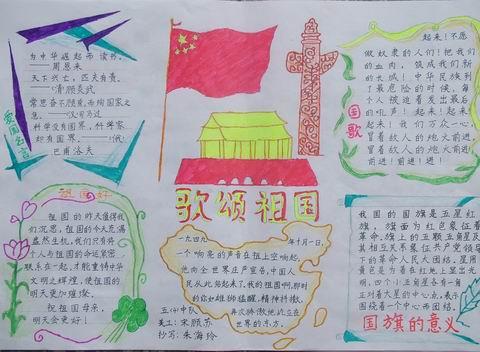 为中华崛起而读书。
——周恩来
天下兴亡，匹夫有责。
——(清)顾炎武
常思奋不顾身，而殉国家之
急。——(汉)司马迁
科学没有国界，科学家
却有国界。——(俄)
巴甫洛夫
爱国名言
起来！不愿
做奴隶的人们！把我们
的血肉，筑成我们新
的长城！中华民族到
了最危险的时候，每
个人被迫着发出最后
的吼声！起来！起来！
起来！我们万众一心，
冒着敌人的炮火前进，
冒着敌人的炮火前进！
前进！前进！进！
国歌
歌颂祖国
祖国好
祖国的昨天值得我
们沉思，祖国的今天充满
盎然生机，我们只有将
个人与祖国的命运紧密
联系在一起，才能重铸中华
文明之辉煌，使祖国的
明天更加璀璨。
祝祖国母亲，
明天会更好！
一九四九年十月一日，
一个响亮的声音在祖上空响起，
他向全世界庄严宣告，中国人
民从此站起来了，我的祖国啊，那时
的你如雄狮猛醒，精神抖擞，
再次骄傲地屹立在
世界的东方。
五(4)中队
美工：宋颜苏
抄写：朱海玲
我国的国旗是五星红
旗，旗面为红色象征着
革命。旗上的五颗五角星及
其相互关系象征共产党领导
下的革命人民大团结。星用
黄色是为着在红地上显出光
明，四个小五角星各有一角
正对着大星的中心点，表示
围绕着一个中心而团结。
国旗的意义